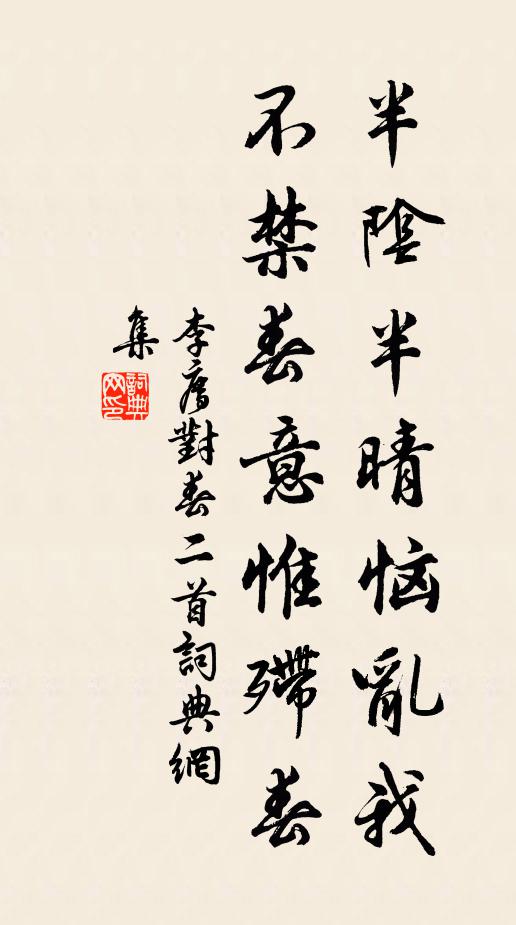 半陰半晴恼亂我
不禁春意惟殢春
李廌對春二首詞典網
集
詞典
网印